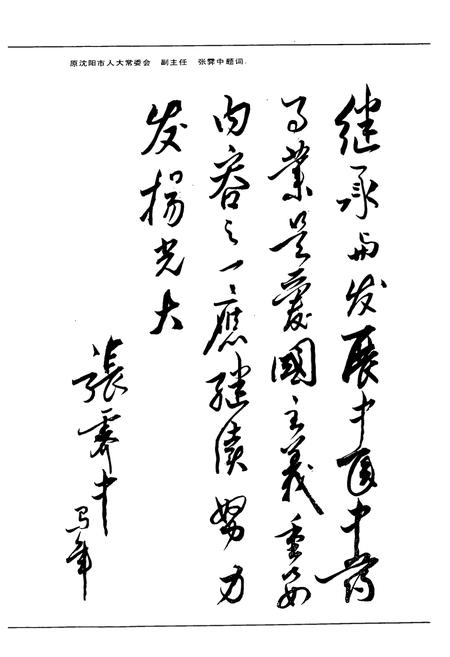 原沈阳市人大常委会 副主任 张霁中题词.
继承与发展中医中药
事業是愛國主義重要
内容之一、應继續努力
发揚光大
張霽中
马年